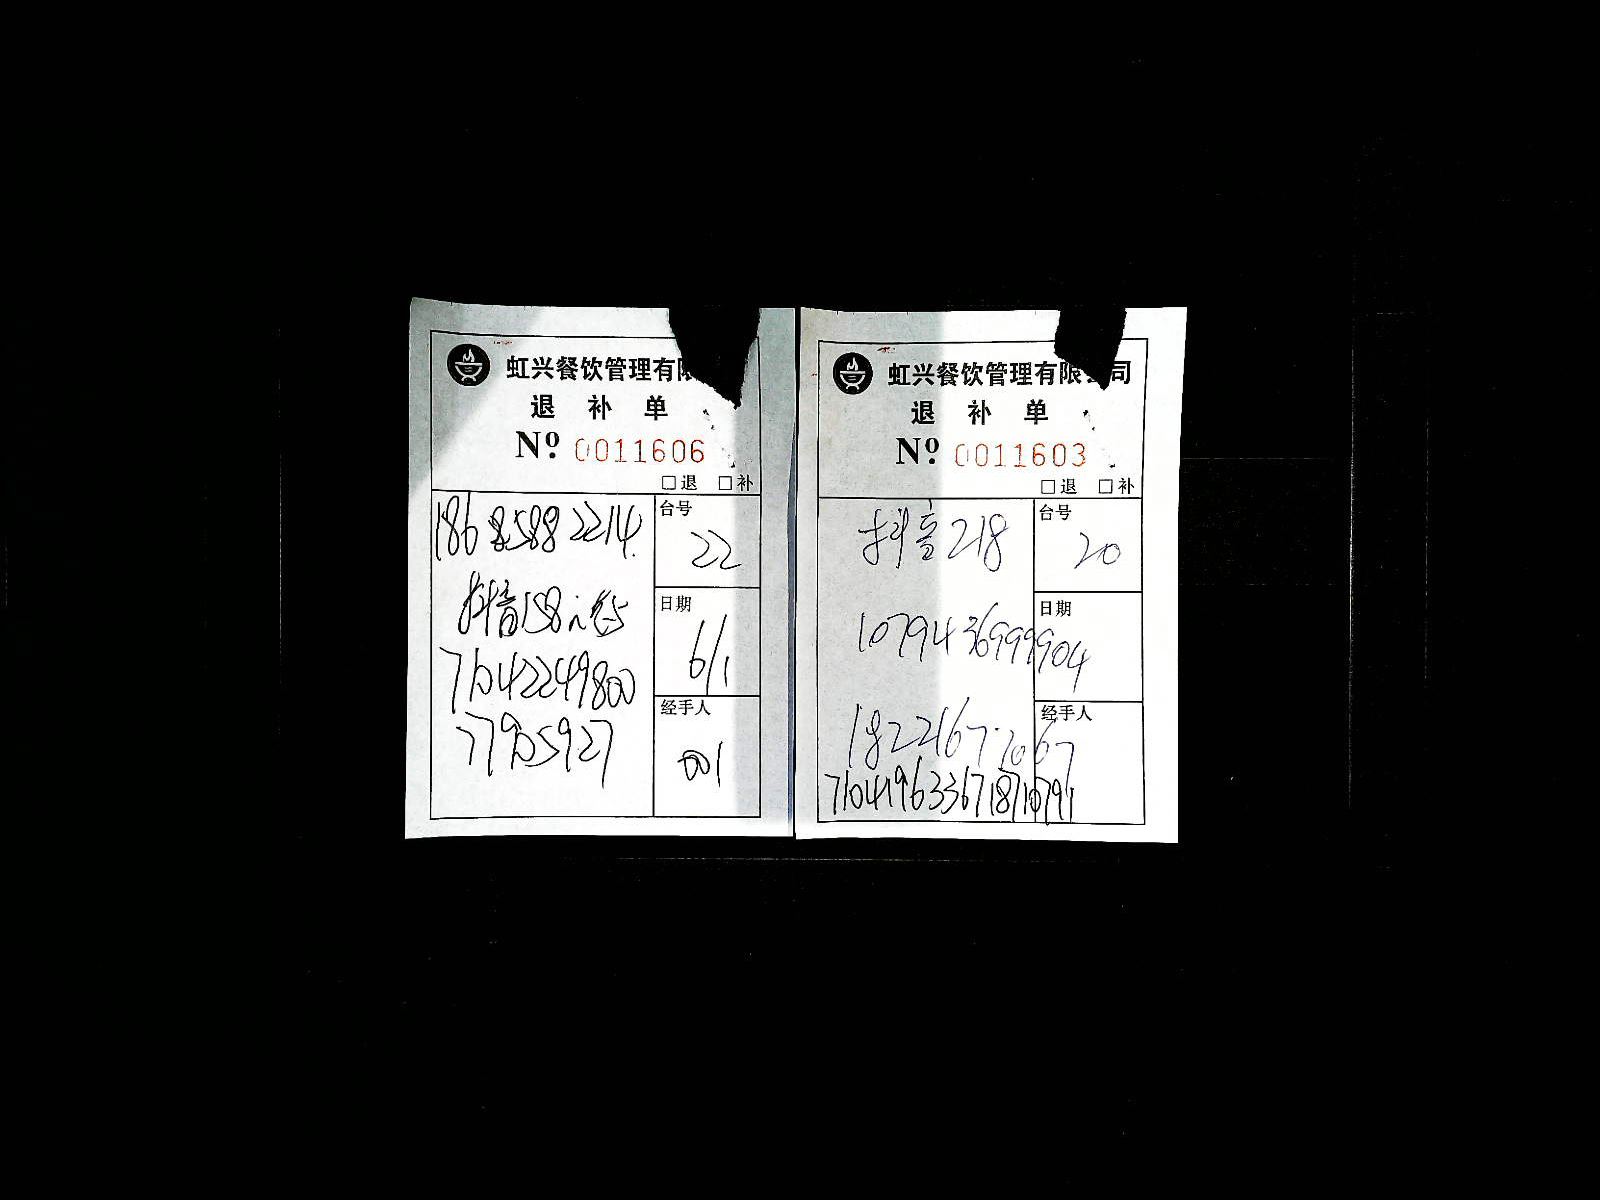 虹兴餐饮管理有限
退 补 单
Nº 0011606
□退 □补
186 8588 2214
台号
22
抖音158元
日期
6/1
71042249800
77905927
经手人
001
虹兴餐饮管理有限 司
退 补 单
Nº 0011603
□退 □补
抖音218
台号
20
1079436999904
日期
18221677067
经手人